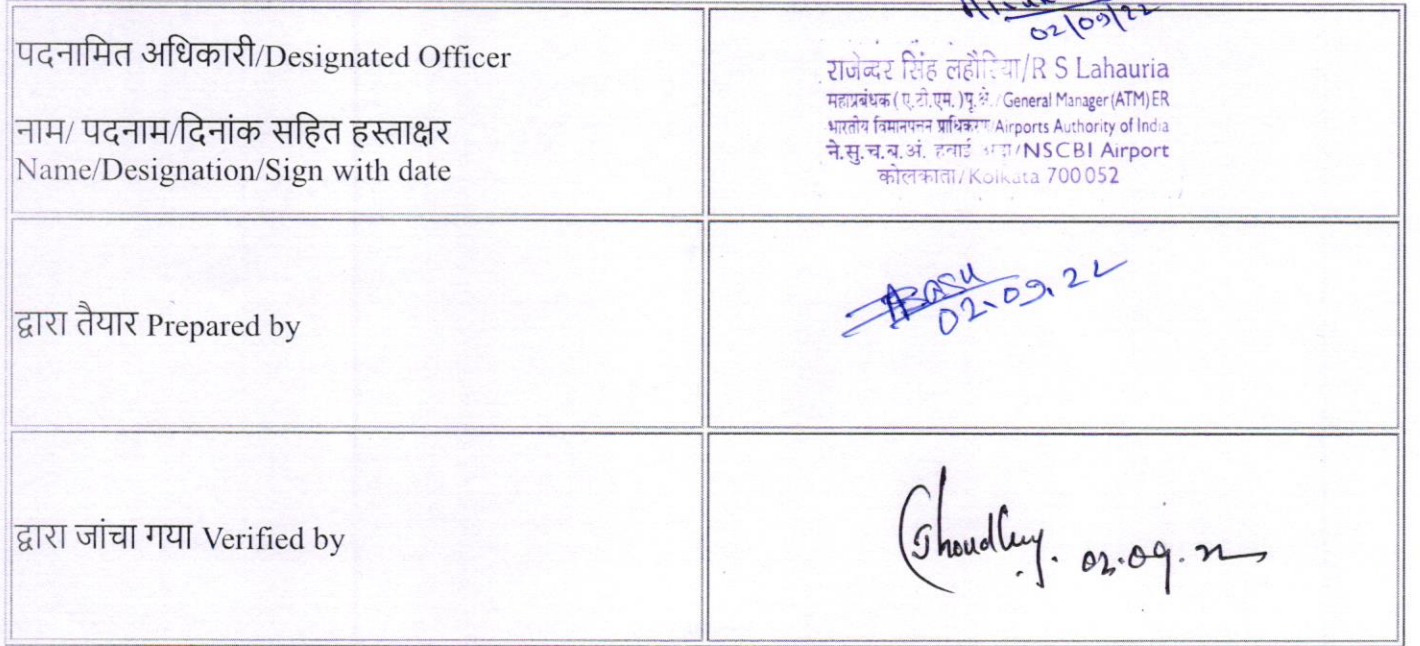 02/09/22
पदनामित अधिकारी/Designated Officer
नाम/ पदनाम/दिनांक सहित हस्ताक्षर
Name/Designation/Sign with date
राजेन्दर सिंह लहौरिया/R S Lahauria
महाप्रबंधक (ए.टी.एम.)पू.क्षे./General Manager (ATM) ER
भारतीय विमानपत्तन प्राधिकरण/Airports Authority of India
ने.सु.च.ब.अं. हवाई अड्डा/NSCBI Airport
कोलकाता/Kolkata 700 052
द्वारा तैयार Prepared by
Basu
02.09.22
द्वारा जांचा गया Verified by
02.09.22